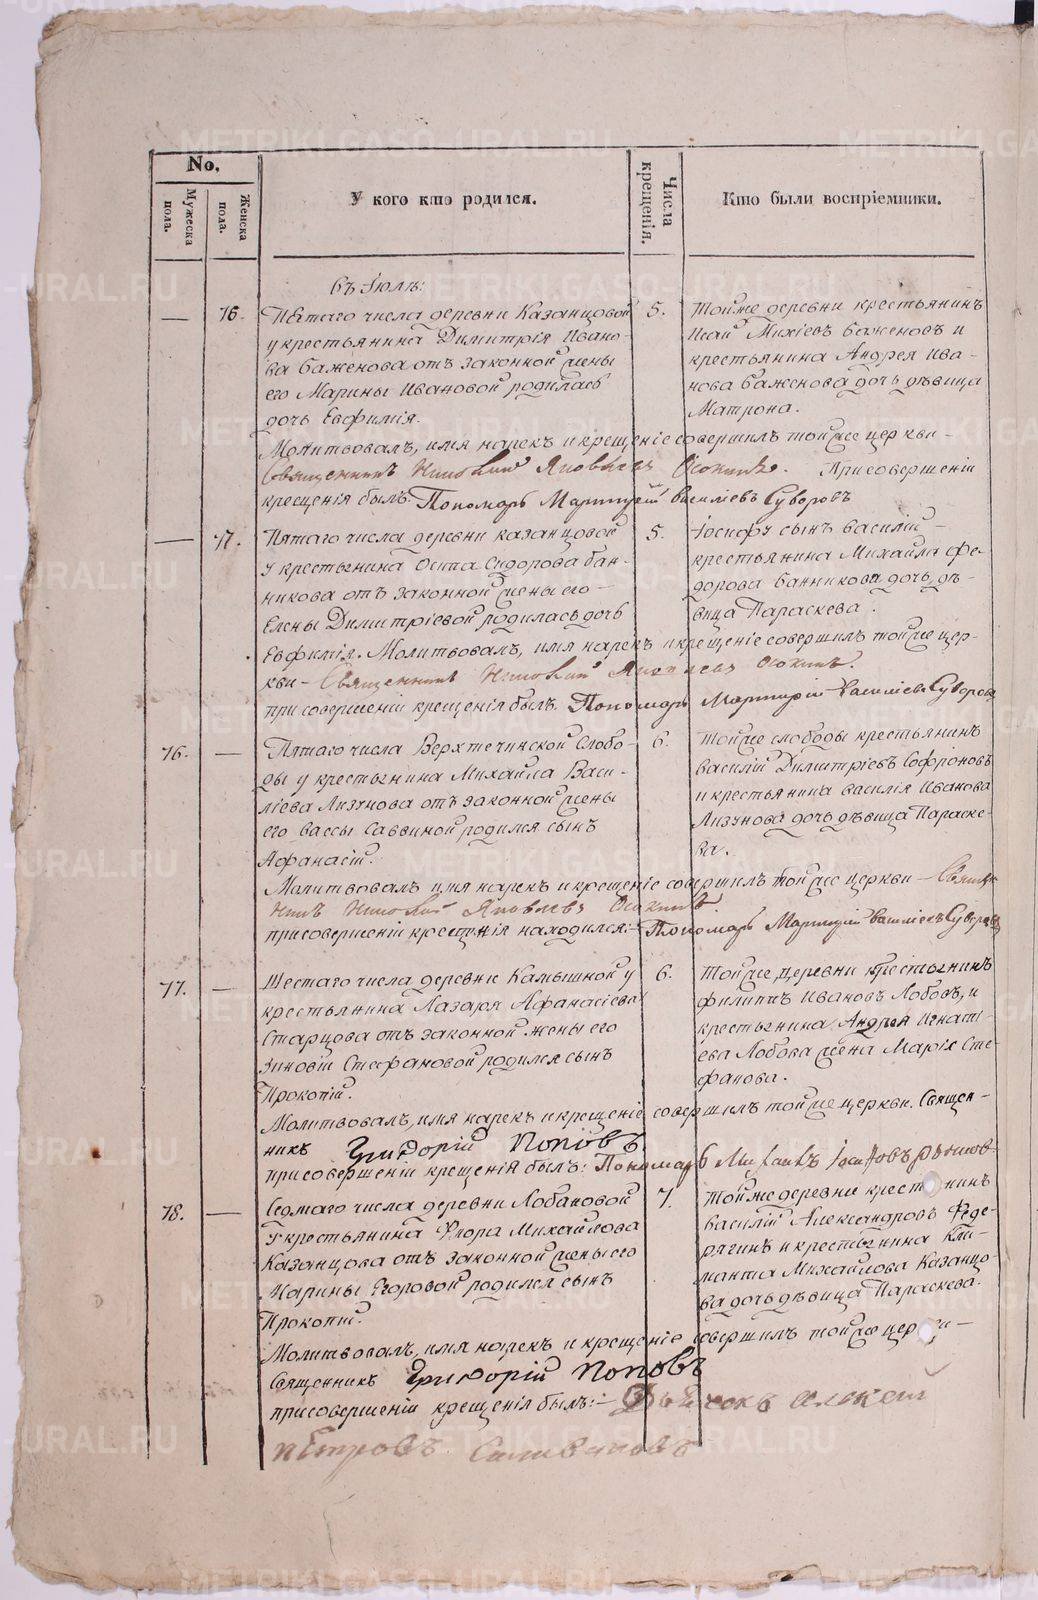 No.
Мужеска пола.
Женска пола.
У кого кто родился.
Числа крещенія.
Кто были воспріемники.
въ Іюлѣ:
— 76. Пятаго числа деревни Казанцовой 5. Тойже деревни крестьянинъ
у крестьянина Димитрія Ивано- Исай Михіевъ Баженовъ и
ва Баженова отъ законной жены крестьянина Андрея Ива-
его Марины Ивановой родилась нова Баженова дочь дѣвица
дочь Евфимія. Матрона.
Молитвовалъ, имя нарекъ и крещеніе совершилъ тойже церкви –
Священникъ Николай Яковлевъ Осокинъ. При совершеніи
крещенія былъ Пономарь Мартирій Василіевъ Суворовъ
— 77. Пятаго числа деревни казанцовой 5. Іосифу сынъ василій –
у крестьянина Осипа Сидорова бан- крестьянина Михаила Фе-
никова отъ законной жены его – дорова банникова дочь дѣ-
Елены Димитріевой родилась дочь вица Параскева.
Евфимія. Молитвовалъ, имя нарекъ и крещеніе совершилъ тойже цер-
кви – Священникъ Николай Яковлевъ Осокинъ.
при совершеніи крещенія былъ Пономарь Мартирій Василіевъ Суворовъ
76. — Пятаго числа Верхтечинской Слобо- 6. Тойже слободы крестьянинъ
ды у крестьянина Михаила Васи- василій Димитріевъ Софроновъ
ліева Лизунова отъ законной жены и крестьянина василія Иванова
его вассы Саввиной родился сынъ Лизунова дочь дѣвица Параске-
Афанасій. ва.
Молитвовалъ имя нарекъ и крещеніе совершилъ тойже церкви – Священ-
никъ Николай Яковлевъ Осокинъ.
присовершеніи крещенія находился:– Пономарь Мартирій Василіевъ Суворовъ
77. — Шестаго числа деревни Камышной у 6. Тойже деревни крестьянинъ
крестьянина Лазаря Афанасіева филиппъ Ивановъ Лобовъ, и
Старцова отъ законной жены его крестьянина Андрея Игнаті-
Зиновіи Стефановой родился сынъ ева Лобова жена Марія Сте-
Прокопій. фанова.
Молитвовалъ, имя нарекъ и крещеніе совершилъ тойже церкви. Священ-
никъ Григорій Поповъ
присовершеніи крещенія былъ: Пономарь
78. — Седмаго числа деревни Лобановой 7. Тойже деревни крестьянинъ
У крестьянина Флора Михайлова василій Александровъ Феде-
Казанцова отъ законной жены его рягинъ и крестьянина Кли-
Марины Егоровой родился сынъ манта Михайлова Казанцо-
Прокопій. ва дочь дѣвица Параскева.
Молитвовалъ, имя нарекъ и крещеніе совершилъ тойже церкви –
Священникъ Григорій Поповъ
присовершеніи крещенія былъ:– Дьячокъ Алексей
Петровъ Силивановъ
METRIKI.GASO-URAL.RU